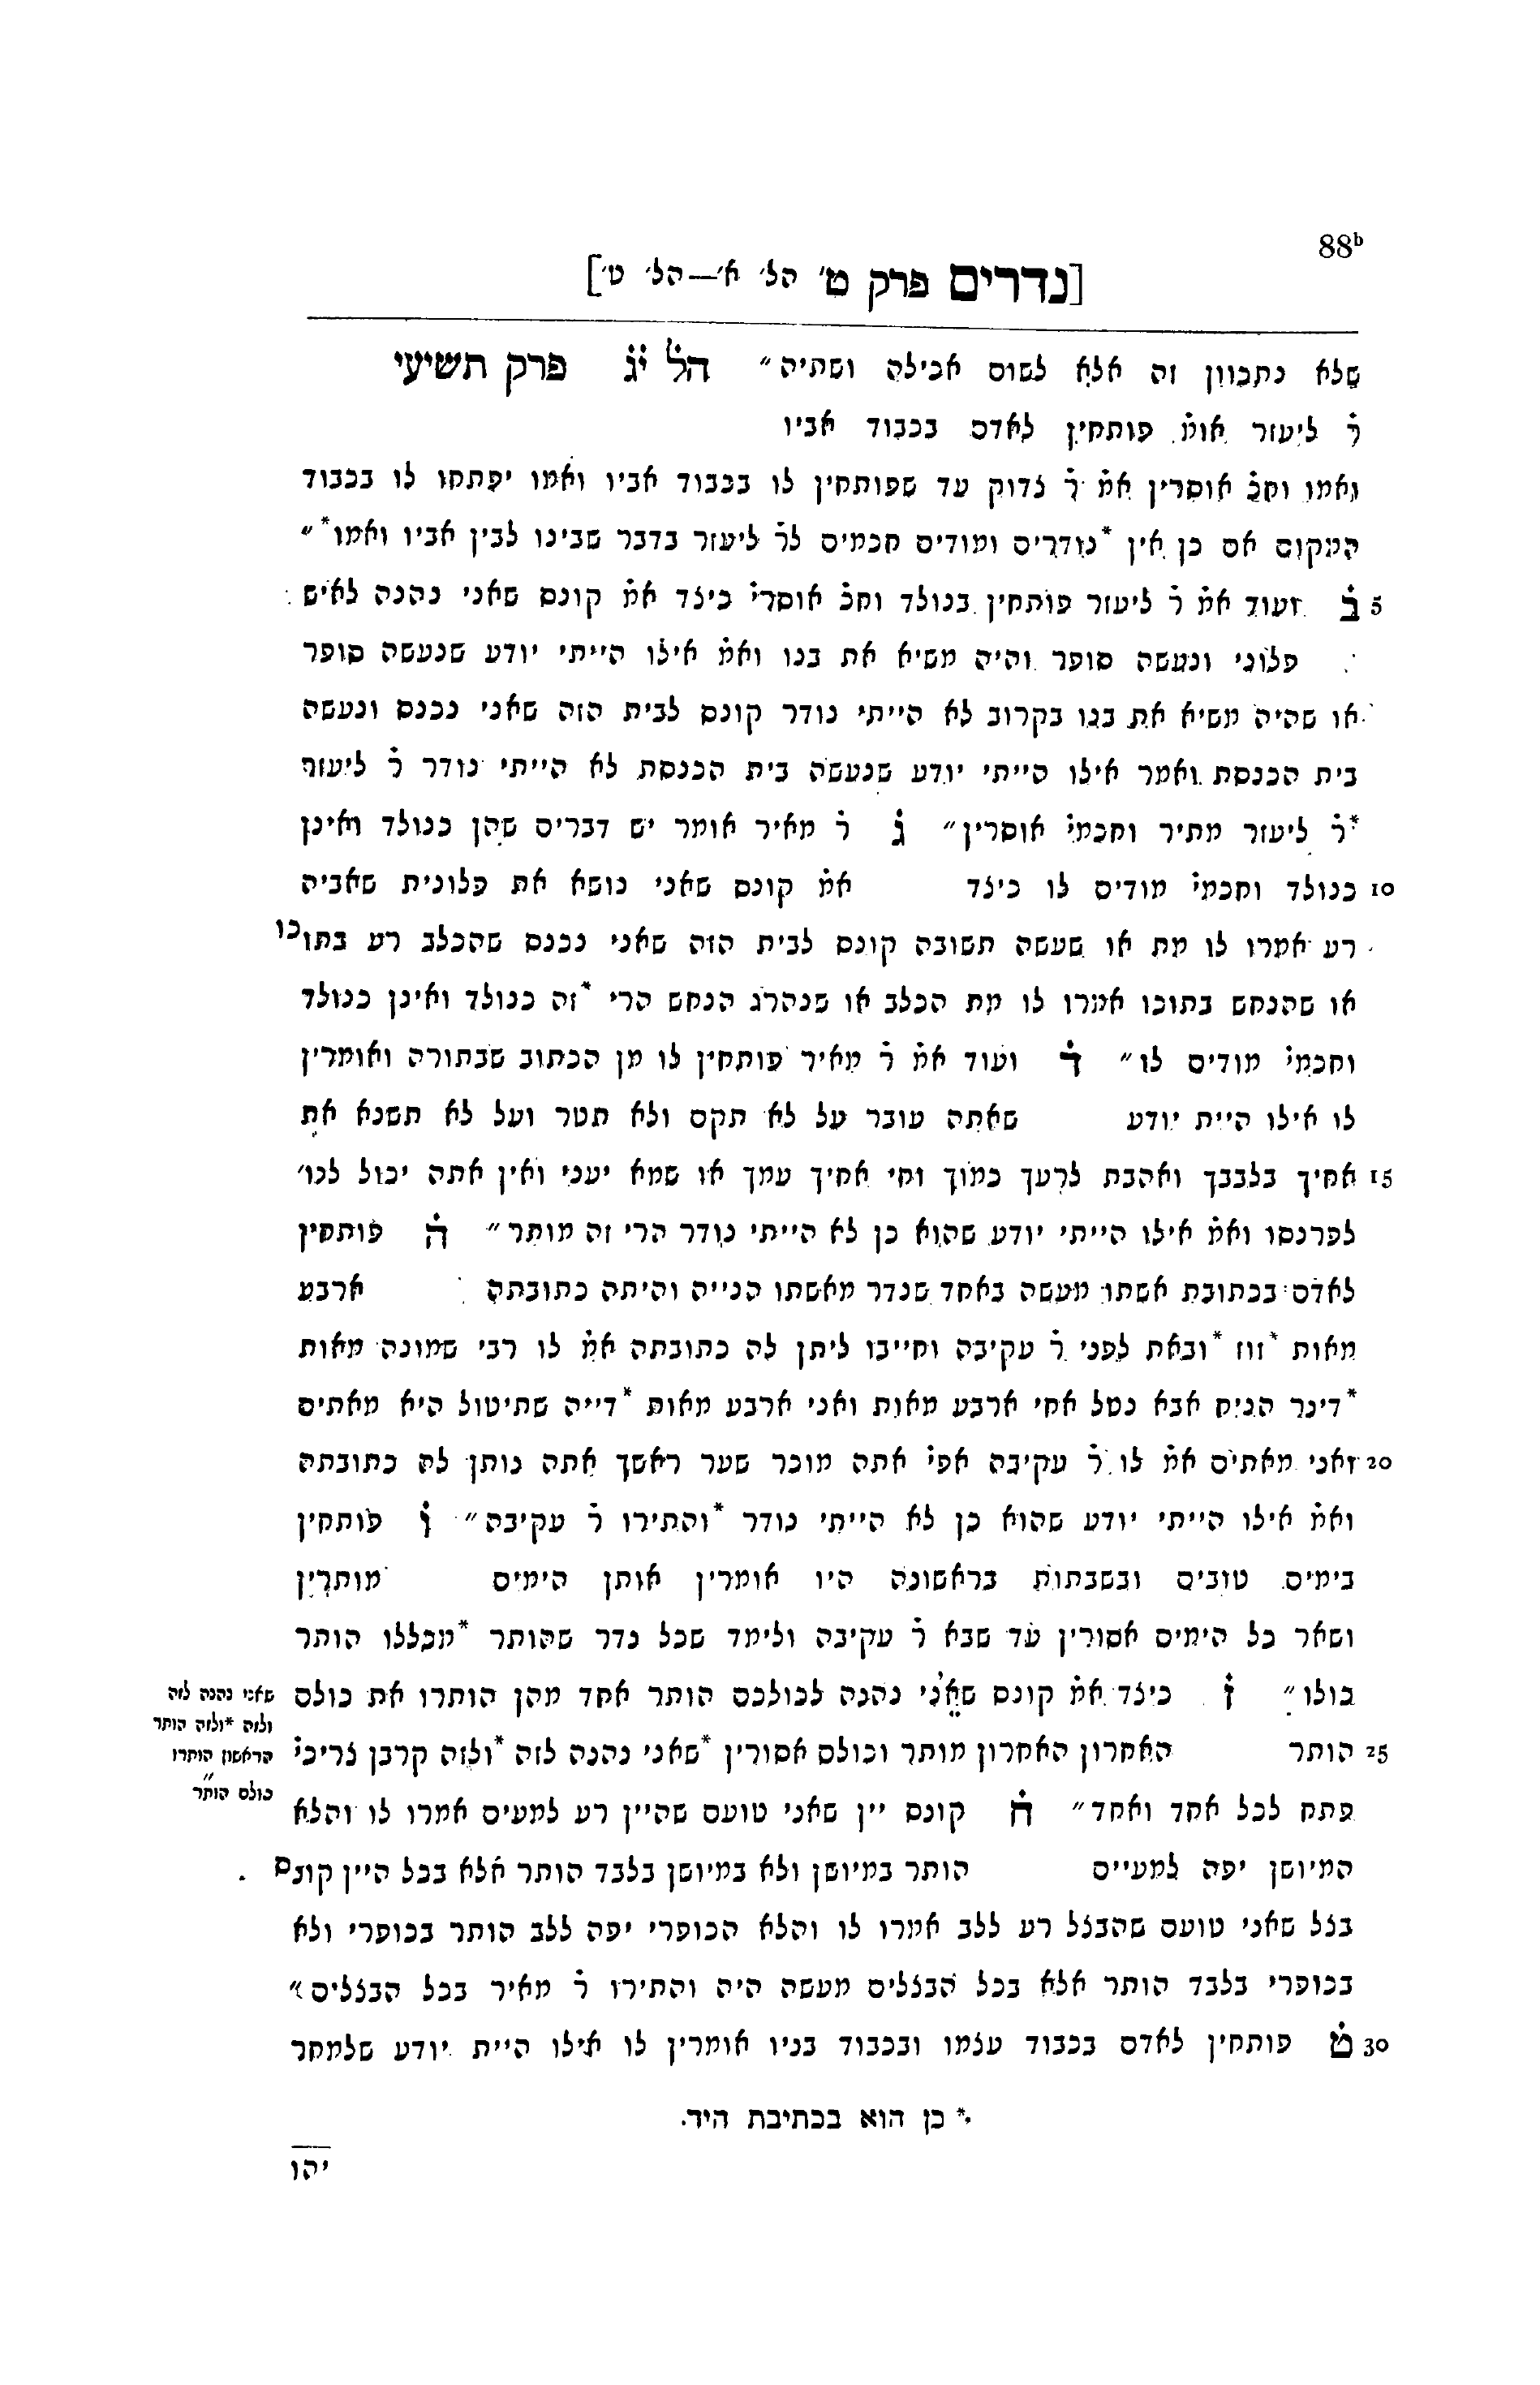 88b
[נדרים פרק ט' הל' א'—הל' ט']
שלא נתכוון זה אלא לשום אכילה ושתיה״ הל יג פרק תשיעי
ר ליעזר אומ פותחין לאדם בכבוד אביו
ואמו וחכ אוסרין אמ ר צדוק עד שפותחין לו בכבוד אביו ואמו יפתחו לו בכבוד
המקום אם כן אין *נודרים ומודים חכמים לר ליעזר בדבר שבינו לבין אביו ואמו*״
5 ב ועוד אמ ר ליעזר פותחין בנולד וחכ אוסרי כיצד אמ קונם שאני נהנה לאיש
פלוני ונעשה סופר והיה משיא את בנו ואמ אילו הייתי יודע שנעשה סופר
או שהיה משיא את בנו בקרוב לא הייתי נודר קונם לבית הזה שאני נכנס ונעשה
בית הכנסת ואמר אילו הייתי יודע שנעשה בית הכנסת לא הייתי נודר ר ליעזר
*ר ליעזר מתיר וחכמי אוסרין״ ג ר מאיר אומר יש דברים שהן כנולד ואינן
10 כנולד וחכמי מודים לו כיצד אמ קונם שאני נושא את פלונית שאביה
רע אמרו לו מת או שעשה תשובה קונם לבית הזה שאני נכנס שהכלב רע בתוכו
או שהנחש בתוכו אמרו לו מת הכלב או שנהרג הנחש הרי *זה כנולד ואינן כנולד
וחכמי מודים לו״ ד ועוד אמ ר מאיר פותחין לו מן הכתוב שבתורה ואומרין
לו אילו היית יודע שאתה עובר על לא תקם ולא תטר ועל לא תשנא את
15 אחיך בלבבך ואהבת לרעך כמוך וחי אחיך עמך או שמא יעני ואין אתה יכול לנו׳
לפרנסו ואמ אילו הייתי יודע שהוא כן לא הייתי נודר הרי זה מותר״ ה פותחין
לאדם בכתובת אשתו מעשה באחד שנדר מאשתו הנייה והיתה כתובתה ארבע
מאות *זוז *ובאת לפני ר עקיבה וחייבו ליתן לה כתובתה אמ לו רבי שמונה מאות
*דינר הניח אבא נטל אחי ארבע מאות ואני ארבע מאות *דייה שתיטול היא מאתים
20 ואני מאתים אמ לו ר עקיבה אפי אתה מוכר שער ראשך אתה נותן לה כתובתה
ואמ אילו הייתי יודע שהוא כן לא הייתי נודר *והתירו ר עקיבה״ ו פותחין
בימים טובים ובשבתות בראשונה היו אומרין אותן הימים מותרין
ושאר כל הימים אסורין עד שבא ר עקיבה ולימד שכל נדר שהותר *מכללו הותר
כולו״ ז כיצד אמ קונם שאני נהנה לכולכם הותר אחד מהן הותרו את כולם
25 הותר האחרון האחרון מותר וכולם אסורין *שאני נהנה לזה *ולזה קרבן צריכי
פתח לכל אחד ואחד״ ח קונם יין שאני טועם שהיין רע למעים אמרו לו והלא
המיושן יפה למעיים הותר במיושן ולא במיושן בלבד הותר אלא בכל היין קונם
בצל שאני טועם שהבצל רע ללב אמרו לו והלא הכופרי יפה ללב הותר בכופרי ולא
בכופרי בלבד הותר אלא בכל הבצלים מעשה היה והתירו ר מאיר בכל הבצלים״
30 ט פותחין לאדם בכבוד עצמו ובכבוד בניו אומרין לו אילו היית יודע שלמחר
שאני נהנה לזה
ולזה *ולזה הותר
הראשון הותרו
כולם הותר
*. כן הוא בכתיבת היד.
יהו